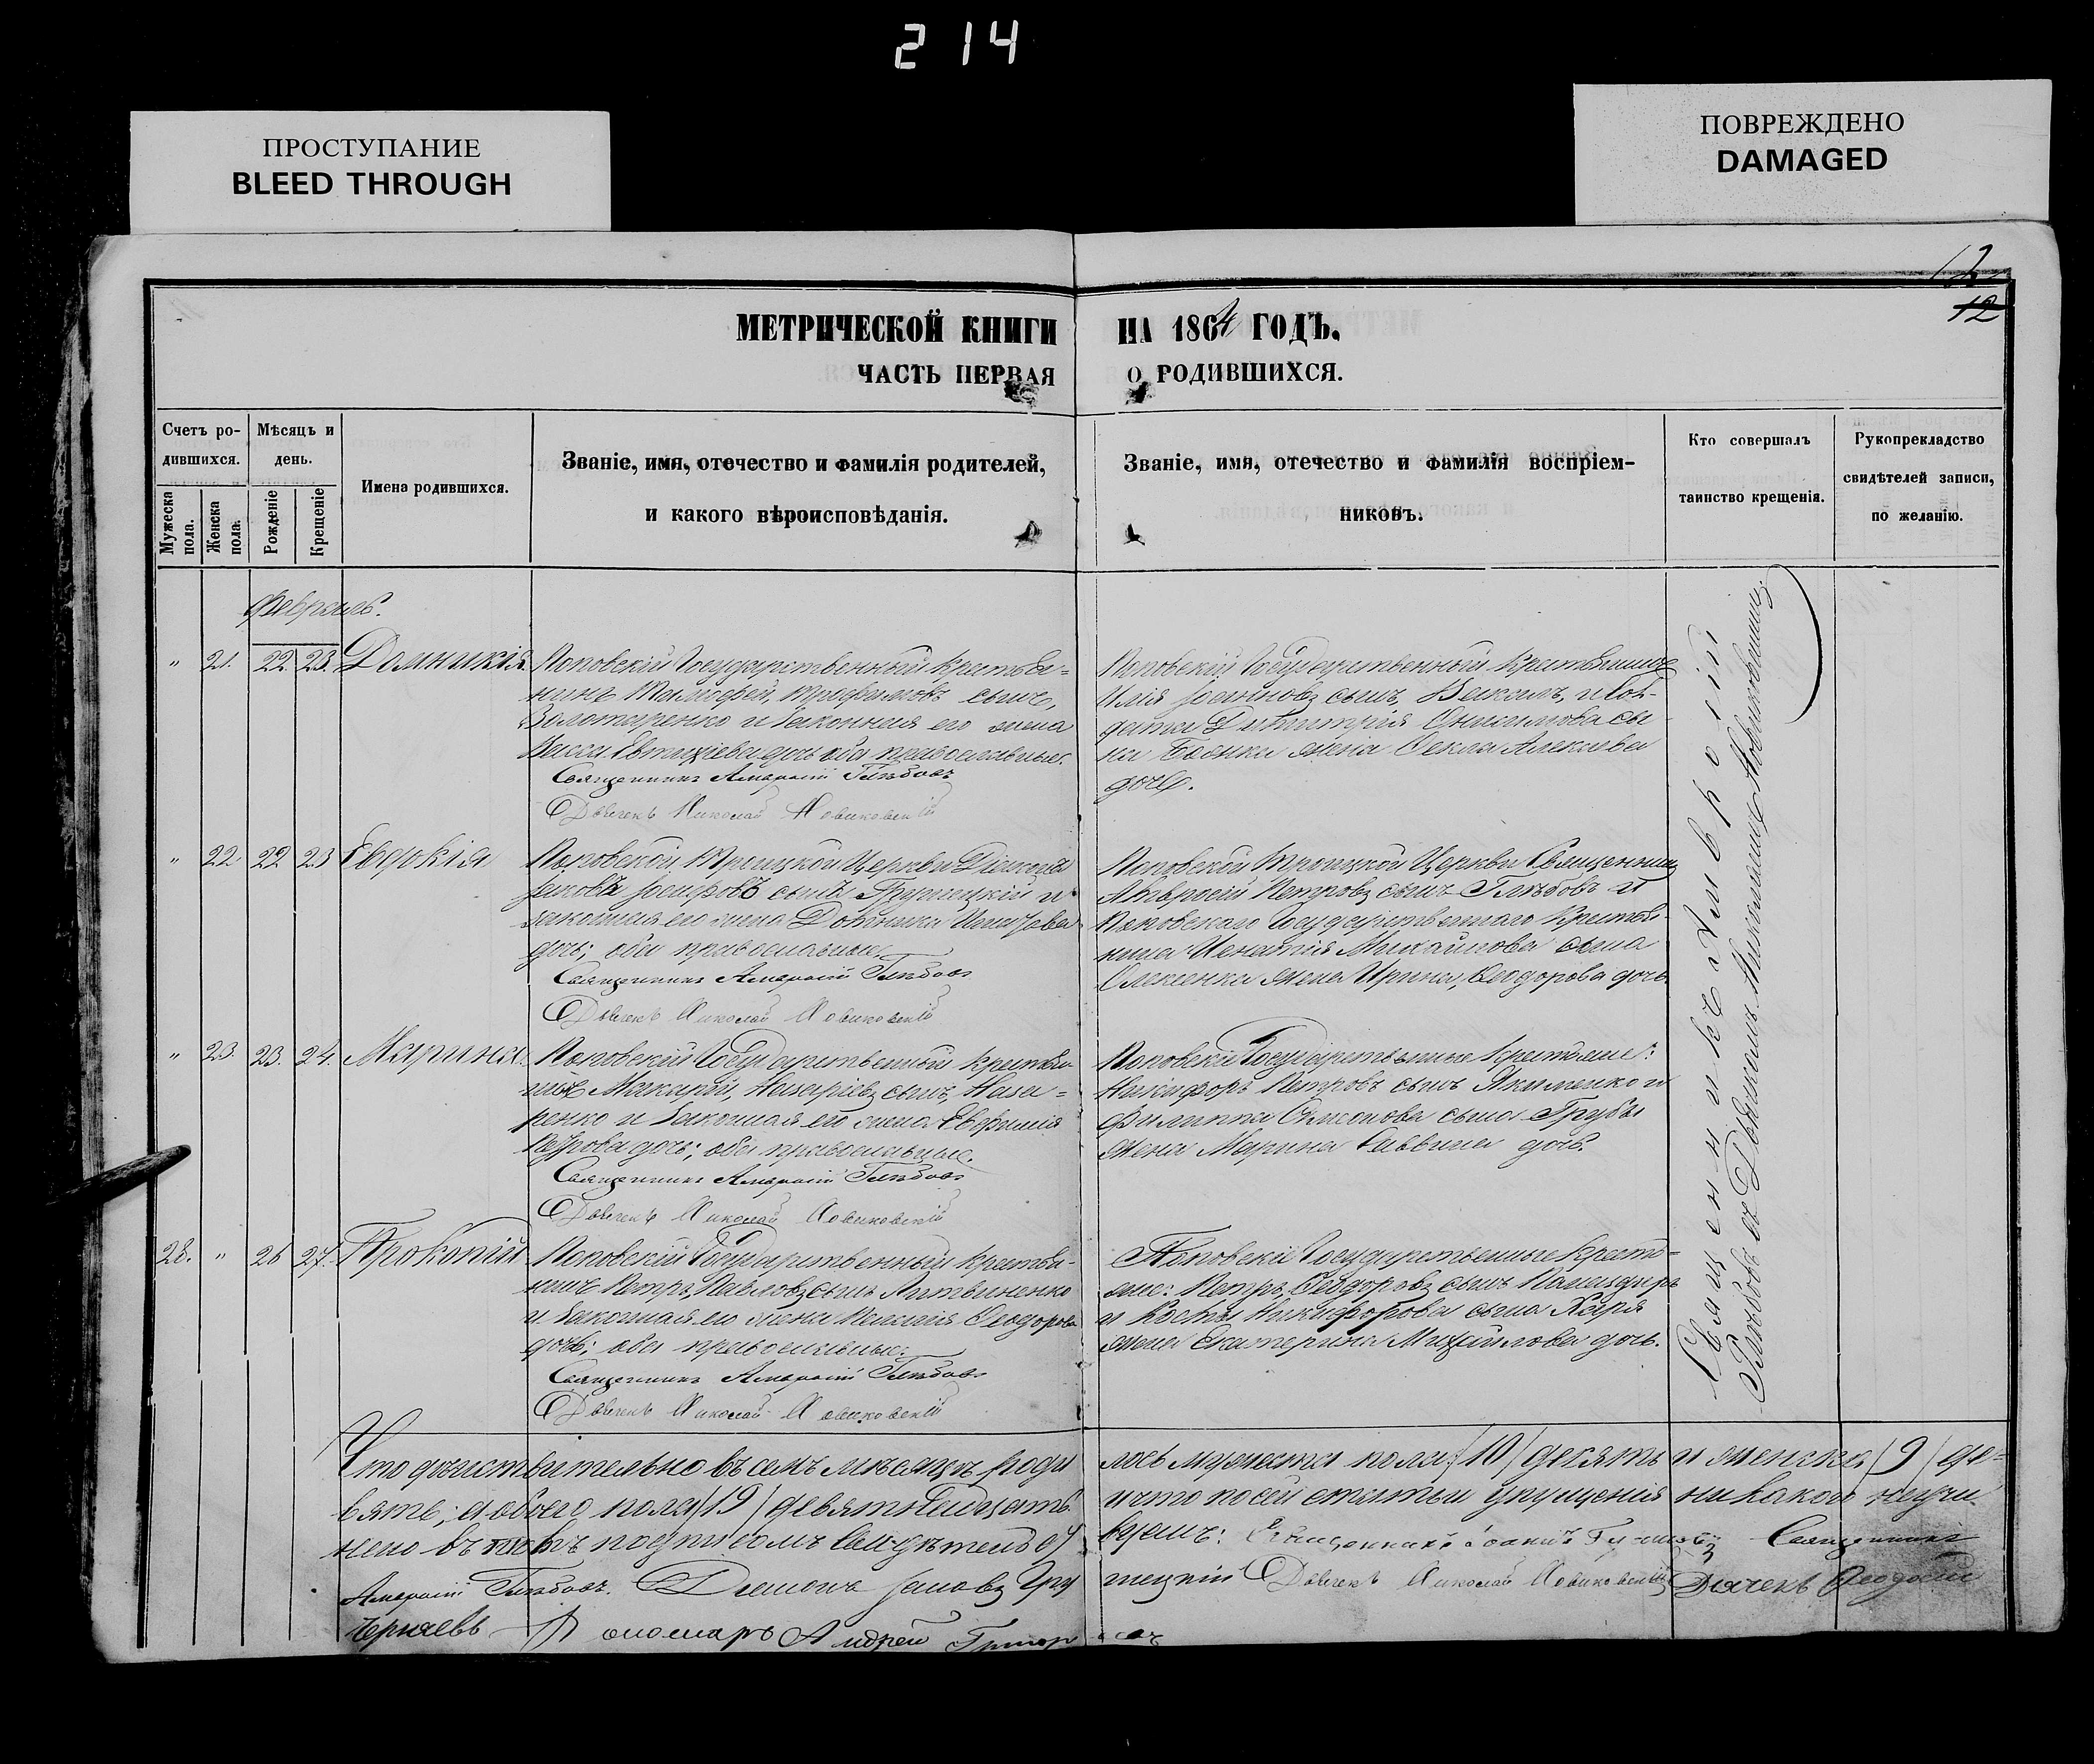 214
ПРОСТУПАНИЕ
BLEED THROUGH
ПОВРЕЖДЕНО
DAMAGED
12
12
МЕТРИЧЕСКОЙ КНИГИ НА 1864 ГОДЪ.
ЧАСТЬ ПЕРВАЯ О РОДИВШИХСЯ.
Счетъ ро-
дившихся.
Мужеска
пола.
Женска
пола.
Мѣсяцъ и
день.
Рожденіе
Крещеніе
Имена родившихся.
Званіе, имя, отечество и фамилія родителей,
и какого вѣроисповѣданія.
Званіе, имя, отечество и фамилія воспріем-
никовъ.
Кто совершалъ
таинство крещенія.
Рукоприкладство
свидѣтелей записи,
по желанію.
Февраль.
" 21. 22. 23. Домникія
Поповскій Государственный крестья-
нинъ Тимофей, Трофимовъ сынъ,
Золотаренко и законная его жена
Васса Евтихіева дочь оба православные.
Священникъ Амвросій Глѣбовъ
Дьячекъ Николай Новиковскій
Поповскій Государственный крестьянинъ
Илія сынъ, и Сол-
дата Димитрія Онисимова сы-
на Боенка жена Оекла Алексѣева
дочь.
" 22. 22 23 Евдокія
Поповской Троицкой Церкви Діаконъ
Іаковъ сынъ Грушецкій и
законная его жена дочь; оба православные.
Священникъ Амвросій Глѣбовъ
Дьячекъ Николай Новиковскій
Поповской Троицкой Церкви Священникъ
Амвросій Петровъ сынъ Глѣбовъ и
Поповскаго Государственнаго крестья-
нина Игнатія Михайлова сына
Олексенка жена Ирина, Ѳеодорова дочь.
" 23. 23. 24. Марина.
Поповскій Государственный крестья-
нинъ Макарій, Назаріевъ сынъ, Наза-
ренко и законная его жена Евфимія
Петрова дочь; оба православные.
Священникъ Амвросій Глѣбовъ
Дьячекъ Николай Новиковскій
Поповскіе Государственные крестьяне:
Никифоръ Петровъ сынъ Якименко и
Филиппа Симонова сына Грубы
жена Марина Саввина дочь.
28. " 26 27. Прокопій
Поповскій Государственный крестья-
нинъ Петръ, Павловъ сынъ Литвиненко
и законная его жена Пелагія Ѳеодорова
дочь; оба православные.
Священникъ Амвросій Глѣбовъ
Дьячекъ Николай Новиковскій
Поповскіе Государственные Кресть-
яне: Петръ, Ѳеодоровъ сынъ
и Никифорова сына Харя
жена Екатерина Михайлова дочь.
Священникъ Амвросій
Глѣбовъ съ Дьячкомъ Николаемъ Новиковскимъ
Что дѣйствительно въ семъ мѣсяцѣ роди лось мужеска пола /10/ десять и женска /9/ де-
вять; а обоего пола /19/ девятнадцать и что по сей статьи упущенія никакого неучи
нено въ томъ подписомъ свидѣтельствуемъ: Священникъ Іоаннъ Священникъ
Амвросій Глѣбовъ. Діаконъ Іаковъ Гру шецкій Дьячекъ Николай Новиковскій Дьячекъ Ѳеодосій
Черняевъ Пономарь Андрей